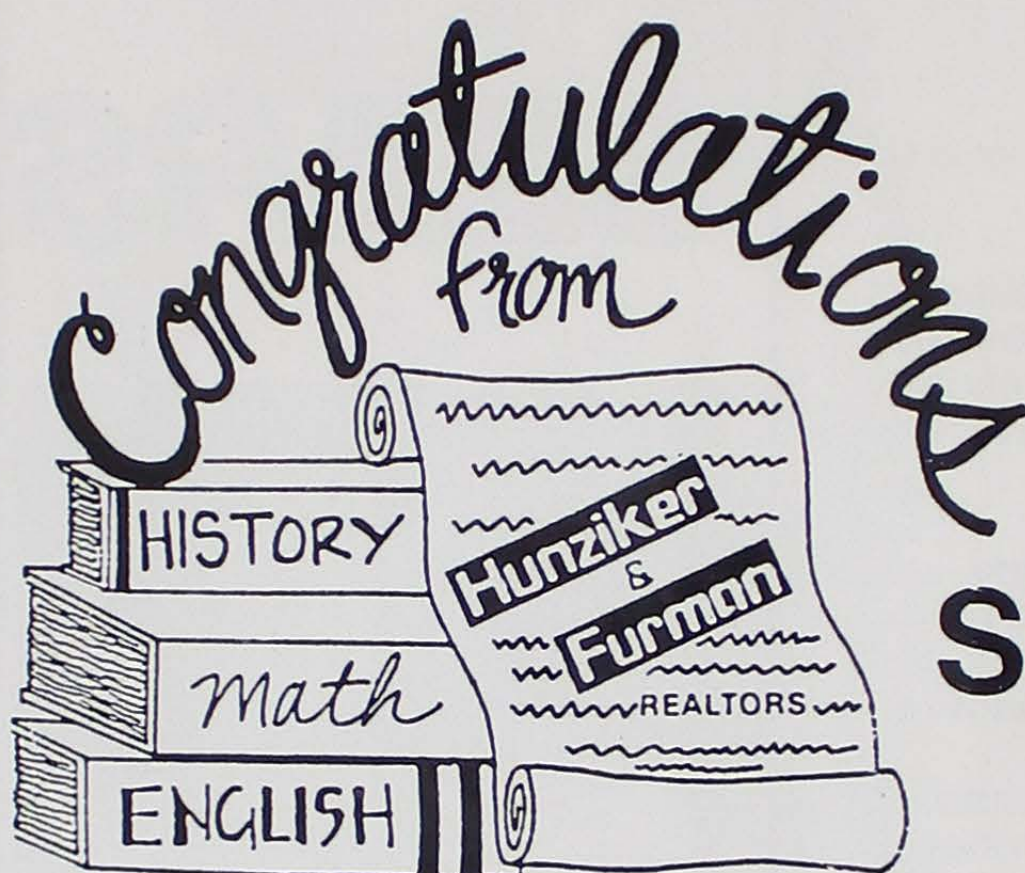 Congratulations
from
HISTORY
Math
ENGLISH
Hunziker
&
Furman
REALTORS
S